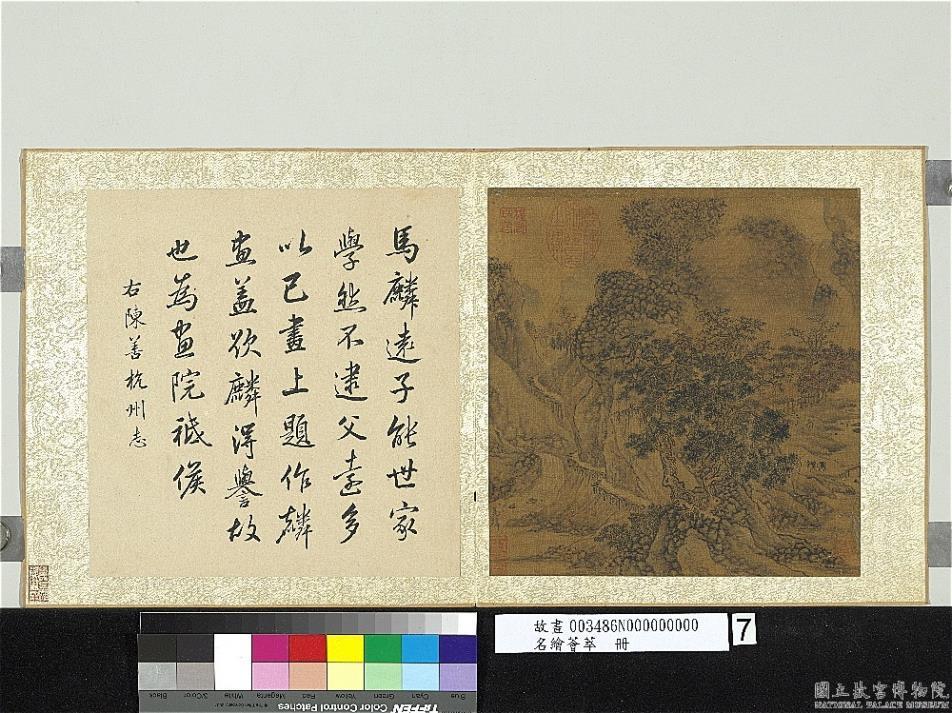 馬麟遠子能世家
學然不逮父遠多
以己畫上題作麟
畫蓋欲麟得譽故
也為畫院祗候
右陳善杭州志
故畫 003486N000000000
名繪薈萃 冊
7
Black
3/Color
White
Magenta
Red
Yellow
Green
Cyan
Blue
TIFFEN Color Control Patches
國立故宮博物院
NATIONAL PALACE MUSEUM